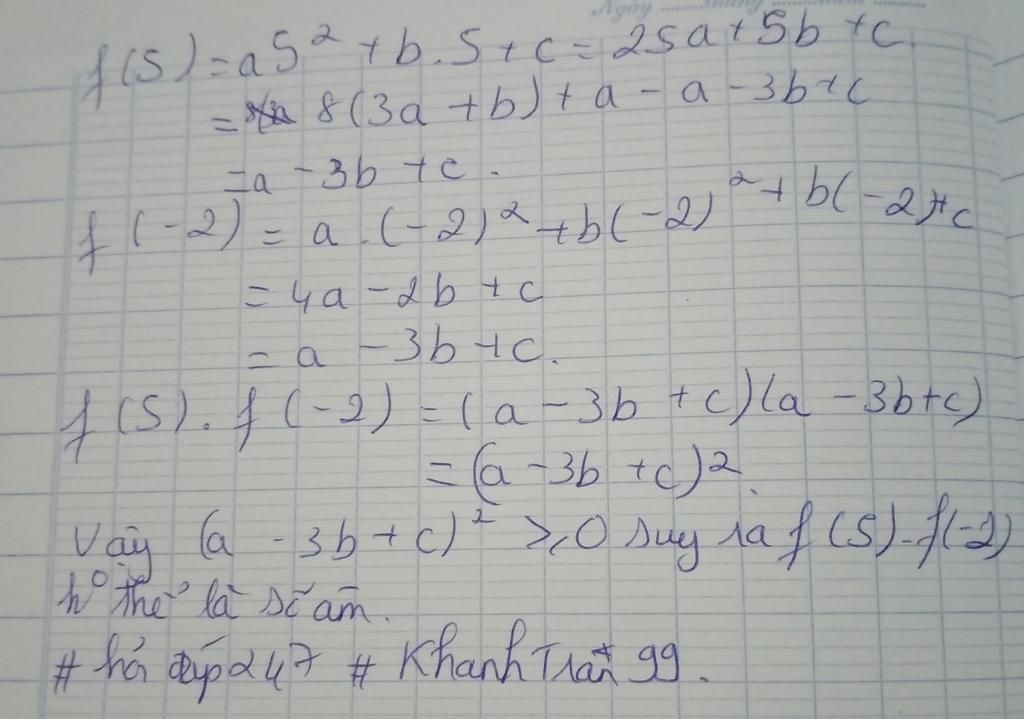 Ngày ........... tháng ...........
f(5) = a5² + b.5 + c = 25a + 5b + c
= 8(3a + b) + a - a - 3b + c
= a - 3b + c.
f(-2) = a.(-2)² + b(-2)² + b(-2) + c
= 4a - 2b + c
= a - 3b + c.
f(5).f(-2) = (a - 3b + c)(a - 3b + c)
= (a - 3b + c)².
Vậy (a - 3b + c)² ≥ 0 suy ra f(5).f(-2)
ko thể là số âm.
# hỏi đáp 247 # Khanh Trần 99.